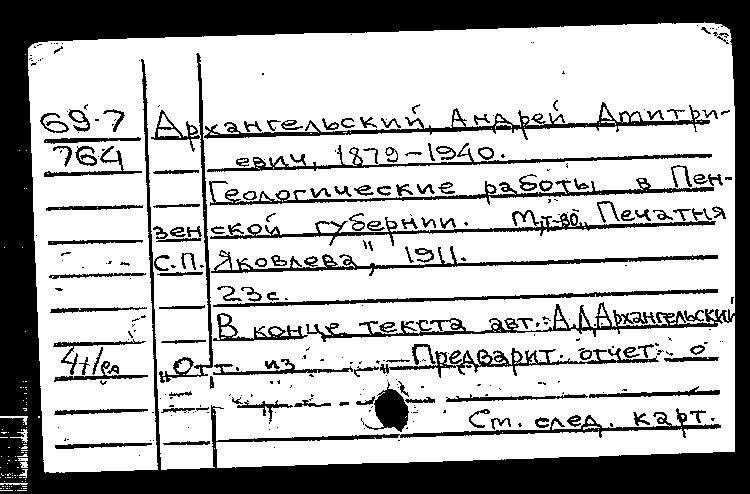 69-7 Архангельский, Андрей Дмитри-
764 евич, 1879-1940.
Геологические работы в Пен-
зенской губернии. М, т-во „Печатня
С.П. Яковлева", 1911.
23 с.
В конце текста авт.: А.Д Архангельский
„Отт. из — Предварит. отчет о
Ст. след. карт.